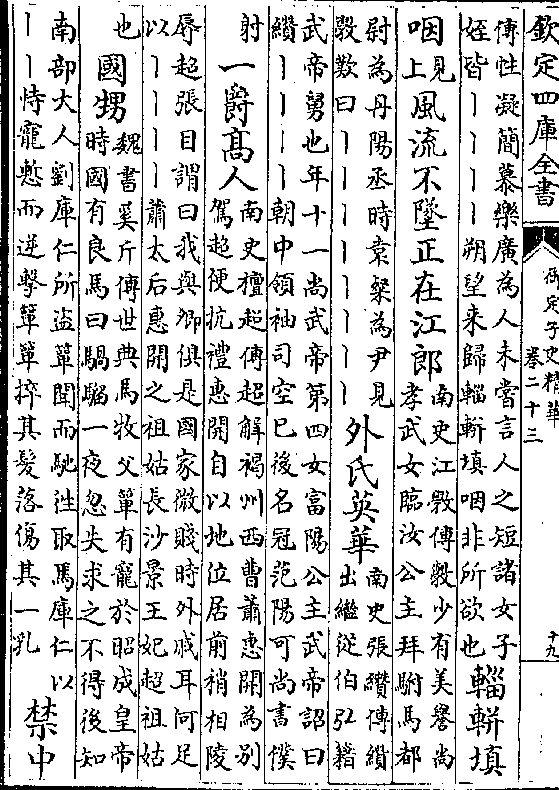 欽定四庫全書
御定子史精華
卷二十三
十九
傳性凝簡慕樂廣為人未嘗言人之短諸女子
姪皆丨丨丨朔望来歸輜軿填咽非所欲也
輜軿填
咽
見上
風流不墜正在江郎
南史江斆傳斆少有美譽尚
孝武女臨汝公主拜駙馬都
尉為丹陽丞時袁粲為尹見
斆歎曰丨丨丨丨丨丨丨丨
外氏英華
南史張纘傳纘
出繼從伯弘籍
武帝舅也年十一尚武帝第四女富陽公主武帝詔曰
纘丨丨丨丨朝中領袖司空已後名冠范陽可尚書僕
射
一爵高人
南史檀超傳超解褐州西曹蕭惠開為别
駕超便抗禮惠開自以地位居前稍相陵
辱超張目謂曰我與卿俱是國家微賤時外戚耳何足
以丨丨丨丨蕭太后惠開之祖姑長沙景王妃超祖姑
也
國甥
魏書奚斤傳世典馬牧父簞有寵於昭成皇帝
時國有良馬曰騧騮一夜忽失求之不得後知
南部大人劉庫仁所盜簞聞而馳往取馬庫仁以
丨丨恃寵慙而逆擊簞簞捽其髮落傷其一乳
禁中